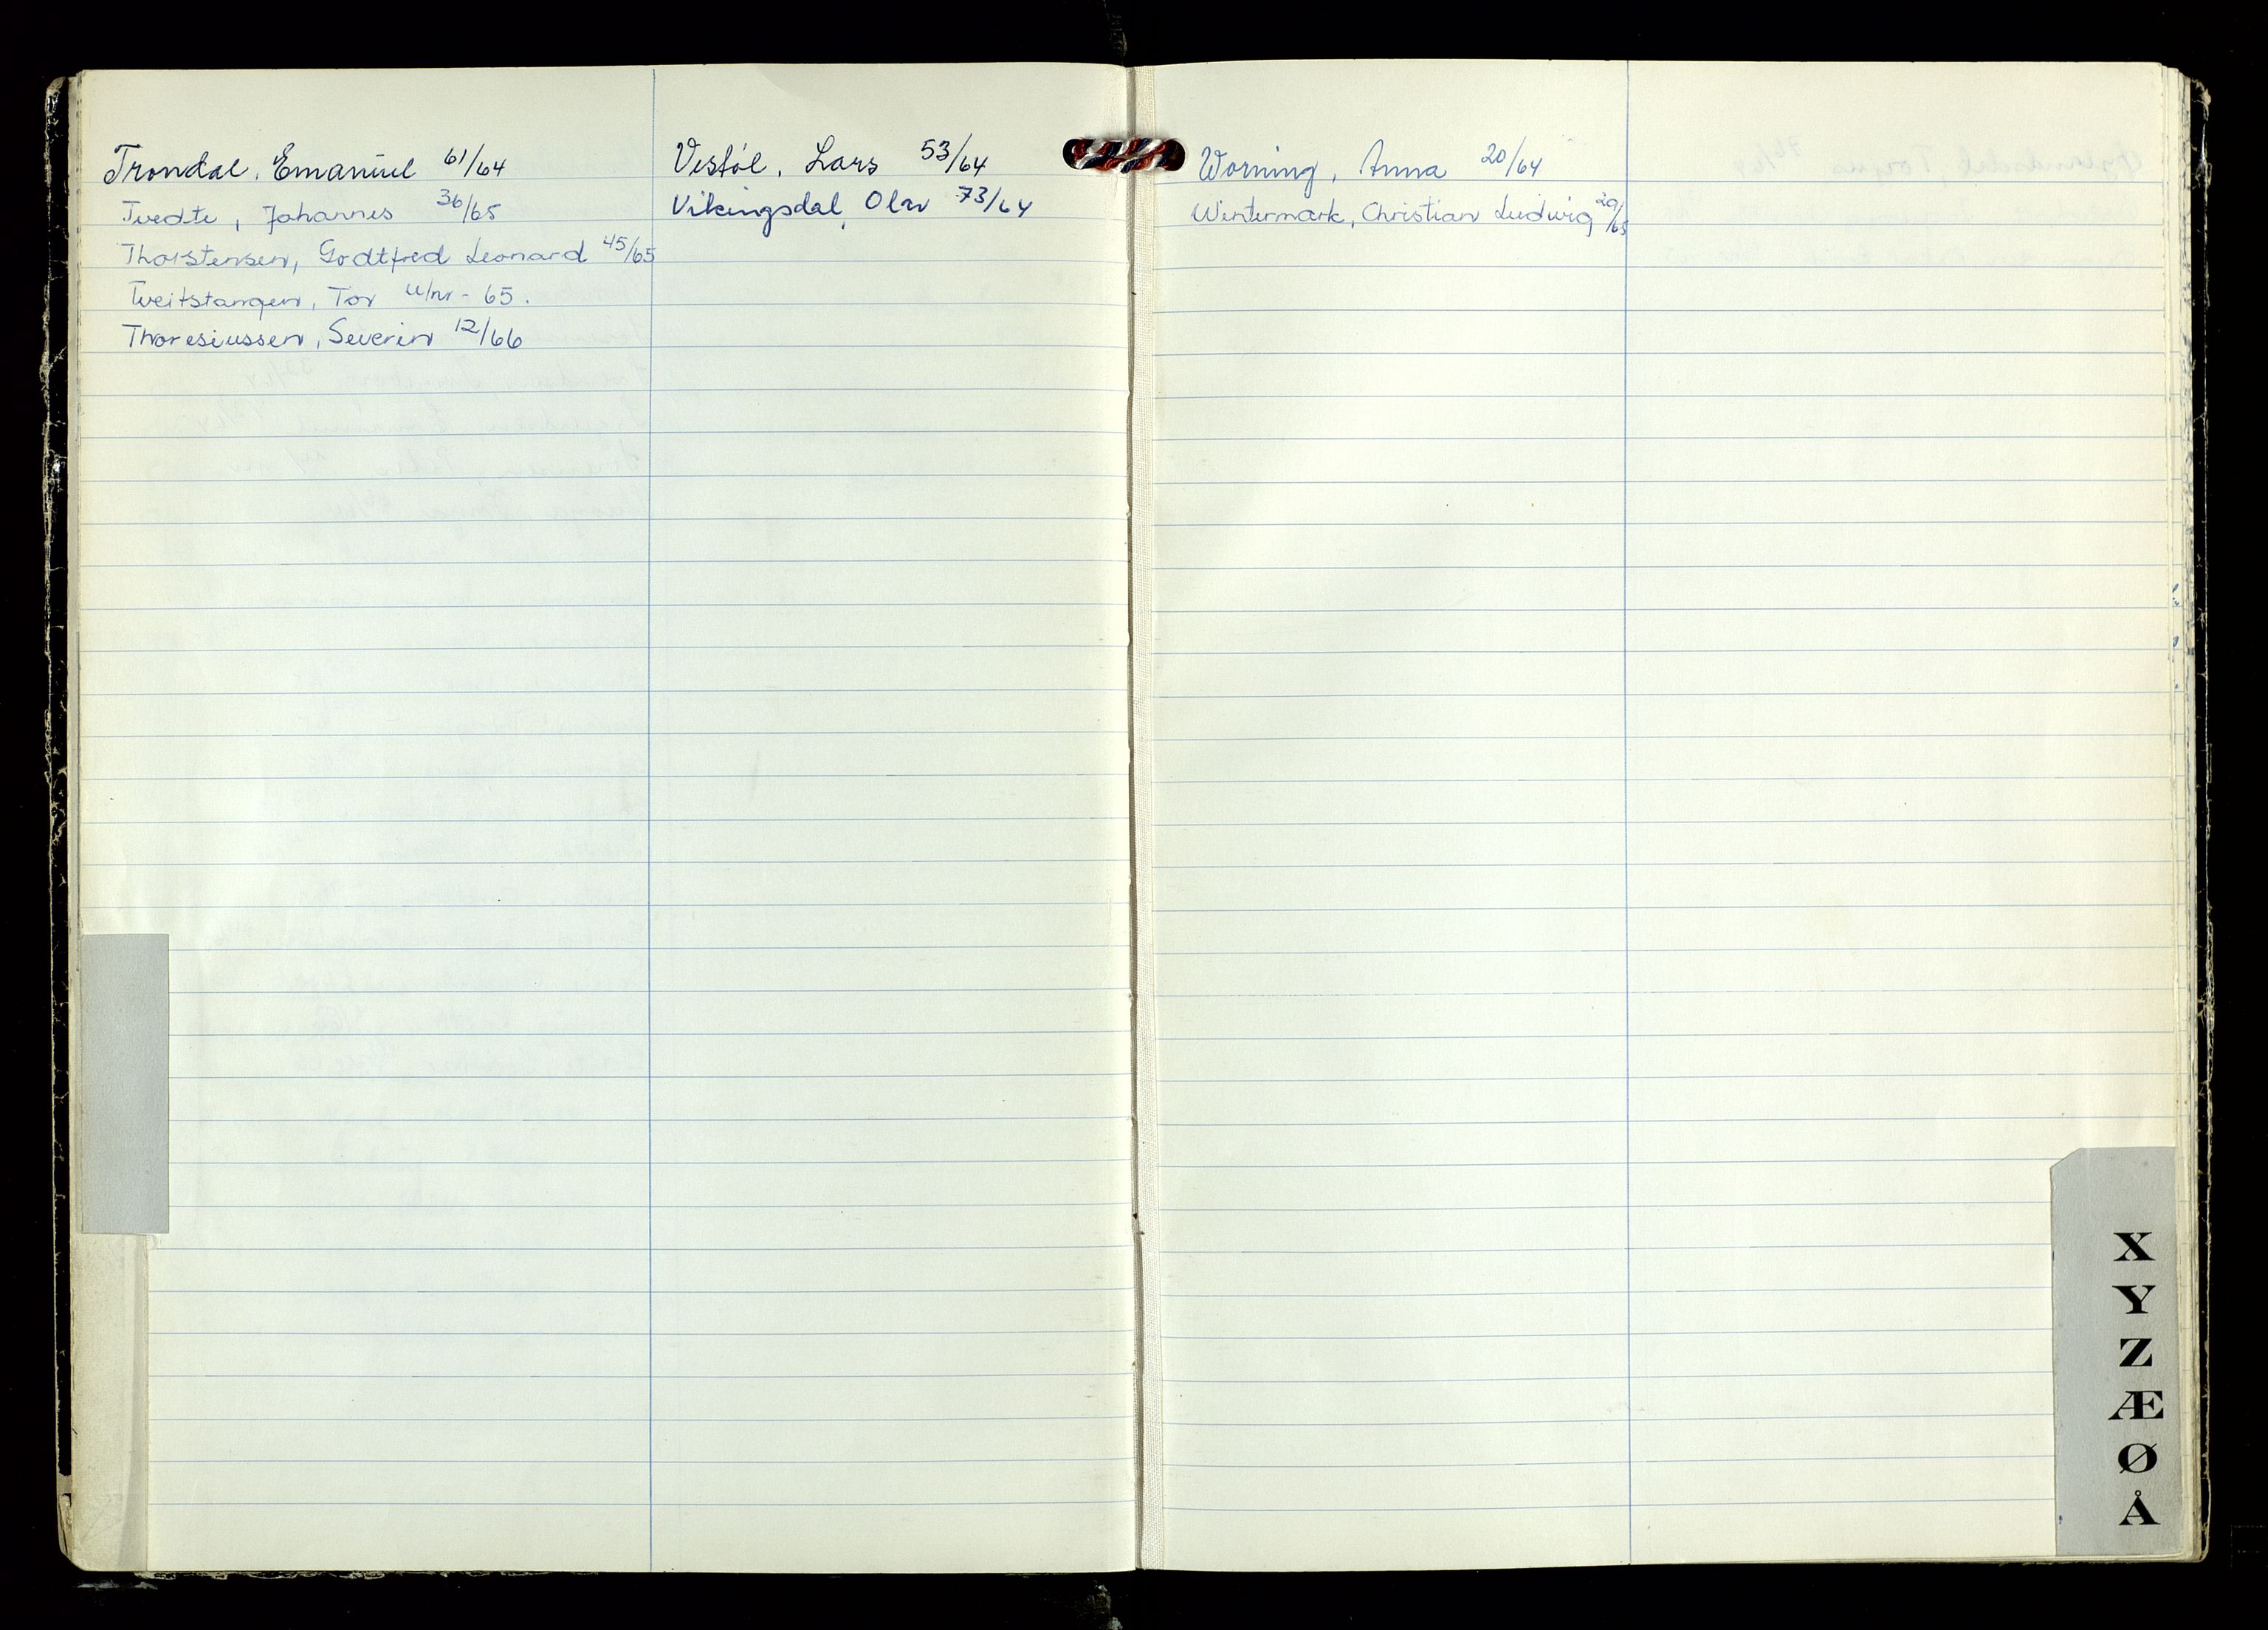 Trondal, Emanuel 61/64
Tvedte, Johannes 36/65
Thorstensen, Godtfred Leonard 45/65
Tveitstangen, Tor u/nr - 65.
Thoresiussen, Severin 12/66
Vestøl, Lars 53/64
Vikingsdal, Olav 73/64
Worning, Anna 20/64
Wintermark, Christian Ludwig 29/65
X
Y
Z
Æ
Ø
Å